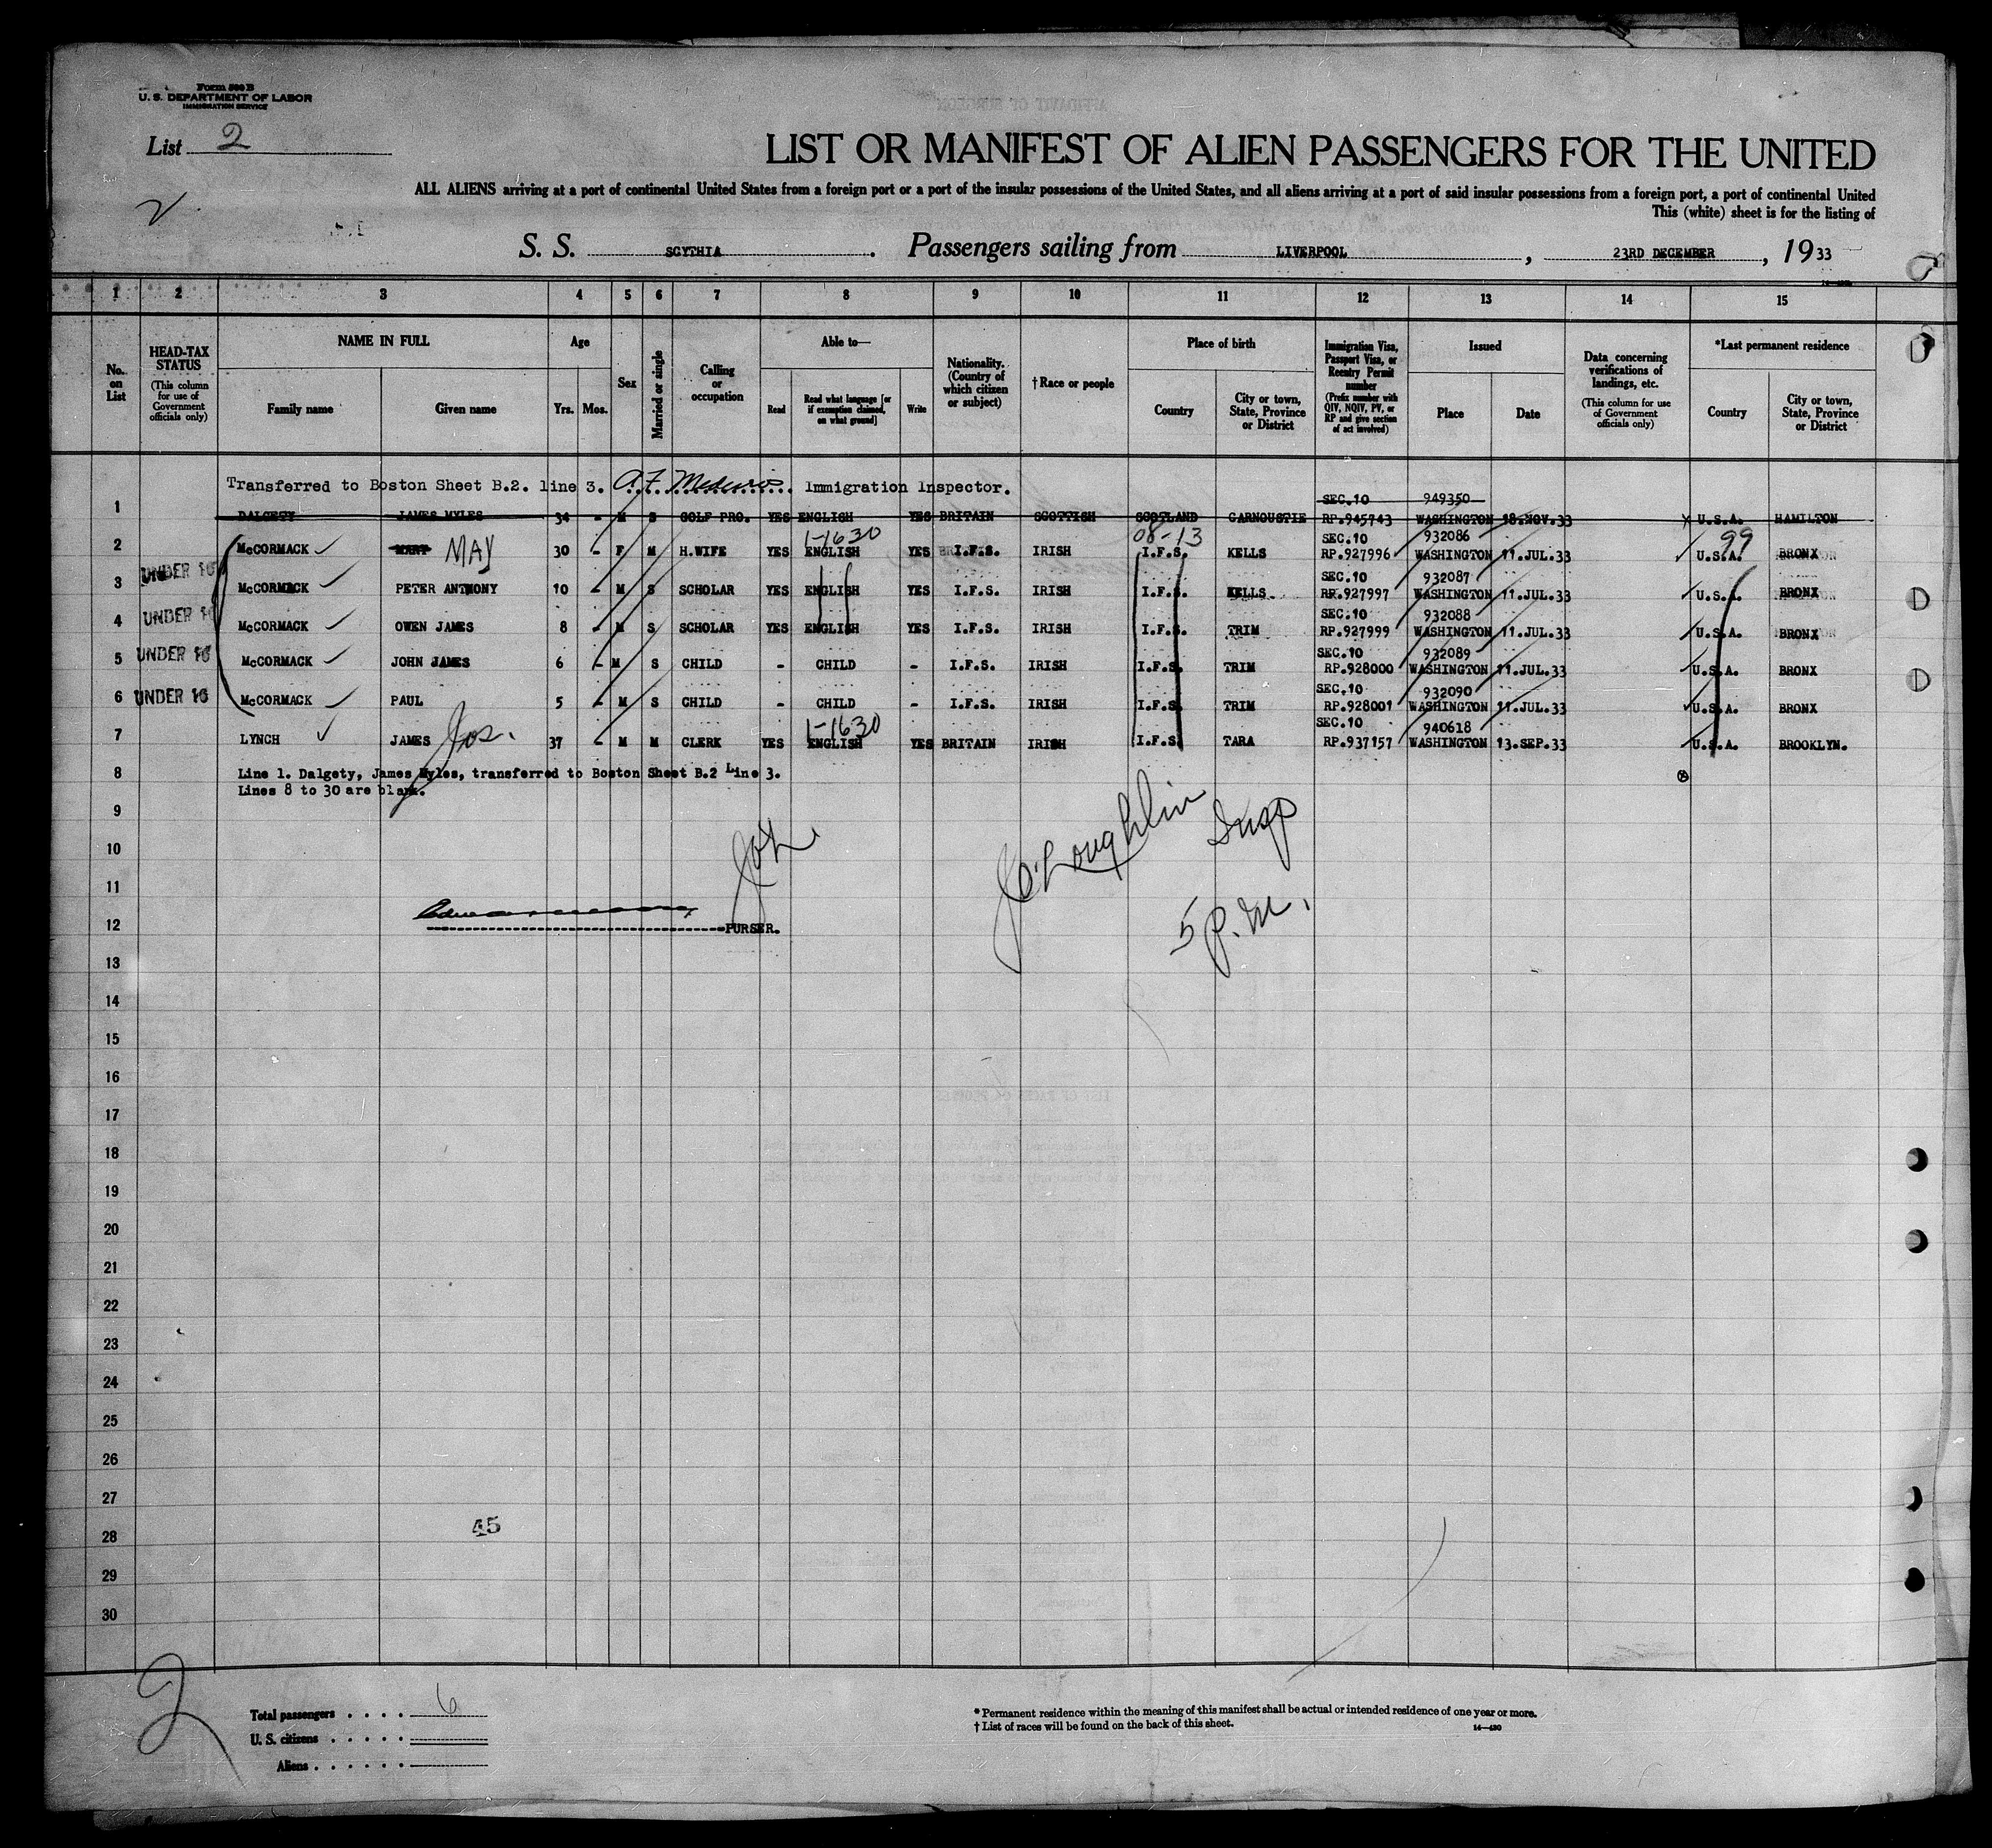 Form 500 B
U. S. DEPARTMENT OF LABOR
IMMIGRATION SERVICE
List 2
LIST OR MANIFEST OF ALIEN PASSENGERS FOR THE UNITED
ALL ALIENS arriving at a port of continental United States from a foreign port or a port of the insular possessions of the United States, and all aliens arriving at a port of said insular possessions from a foreign port, a port of continental United
This (white) sheet is for the listing of
S. S. SCYTHIA. Passengers sailing from LIVERPOOL, 23RD DECEMBER, 1933
1 2 3 4 5 6 7 8 9 10 11 12 13 14 15
No. on List
HEAD-TAX STATUS (This column for use of Government officials only)
NAME IN FULL
Family name
Given name
Age
Yrs. Mos.
Sex
Married or single
Calling or occupation
Able to—
Read
Read what language [or if exemption claimed, on what ground]
Write
Nationality. (Country of which citizen or subject)
†Race or people
Place of birth
Country
City or town, State, Province or District
Immigration Visa, Passport Visa, or Reentry Permit number (Prefix number with QIV, NQIV, PV, or RP and give section of act involved)
Issued
Place
Date
Data concerning verifications of landings, etc. (This column for use of Government officials only)
*Last permanent residence
Country
City or town, State, Province or District
Transferred to Boston Sheet B.2. line 3. A.F. Medeiros Immigration Inspector.
SEC.10 949350
1 DALGETY JAMES MYLES 34 - M S GOLF PRO. YES ENGLISH YES BRITAIN SCOTTISH SCOTLAND CARNOUSTIE RP.945743 WASHINGTON 18.NOV.33 U.S.A. HAMILTON
1-1630 08-13 SEC.10 932086 99
2 McCORMACK MAY 30 - F M H.WIFE YES ENGLISH YES I.F.S. IRISH I.F.S. KELLS RP.927996 WASHINGTON 11.JUL.33 U.S.A. BRONX
UNDER 16 SEC.10 932087
3 McCORMACK PETER ANTHONY 10 - M S SCHOLAR YES ENGLISH YES I.F.S. IRISH I.F.S. KELLS RP.927997 WASHINGTON 11.JUL.33 U.S.A. BRONX
UNDER 16 SEC.10 932088
4 McCORMACK OWEN JAMES 8 - M S SCHOLAR YES ENGLISH YES I.F.S. IRISH I.F.S. TRIM RP.927999 WASHINGTON 11.JUL.33 U.S.A. BRONX
UNDER 16 SEC.10 932089
5 McCORMACK JOHN JAMES 6 - M S CHILD - CHILD - I.F.S. IRISH I.F.S. TRIM RP.928000 WASHINGTON 11.JUL.33 U.S.A. BRONX
UNDER 16 SEC.10 932090
6 McCORMACK PAUL 5 - M S CHILD - CHILD - I.F.S. IRISH I.F.S. TRIM RP.928001 WASHINGTON 11.JUL.33 U.S.A. BRONX
1-1630 SEC.10 940618
7 LYNCH JAMES Jos. 37 - M M CLERK YES ENGLISH YES BRITAIN IRISH I.F.S. TARA RP.937157 WASHINGTON 13.SEP.33 U.S.A. BROOKLYN.
8 Line 1. Dalgety, James Myles, transferred to Boston Sheet B.2 Line 3.
Lines 8 to 30 are blank.
9
10
J. O'Loughlin Insp
11
5 p.m.
12 PURSER.
13
14
15
16
17
18
19
20
21
22
23
24
25
26
27
28 45
29
30
2
Total passengers . . . . 6
U. S. citizens . . . . .
Aliens . . . . . .
* Permanent residence within the meaning of this manifest shall be actual or intended residence of one year or more.
† List of races will be found on the back of this sheet. 14—430